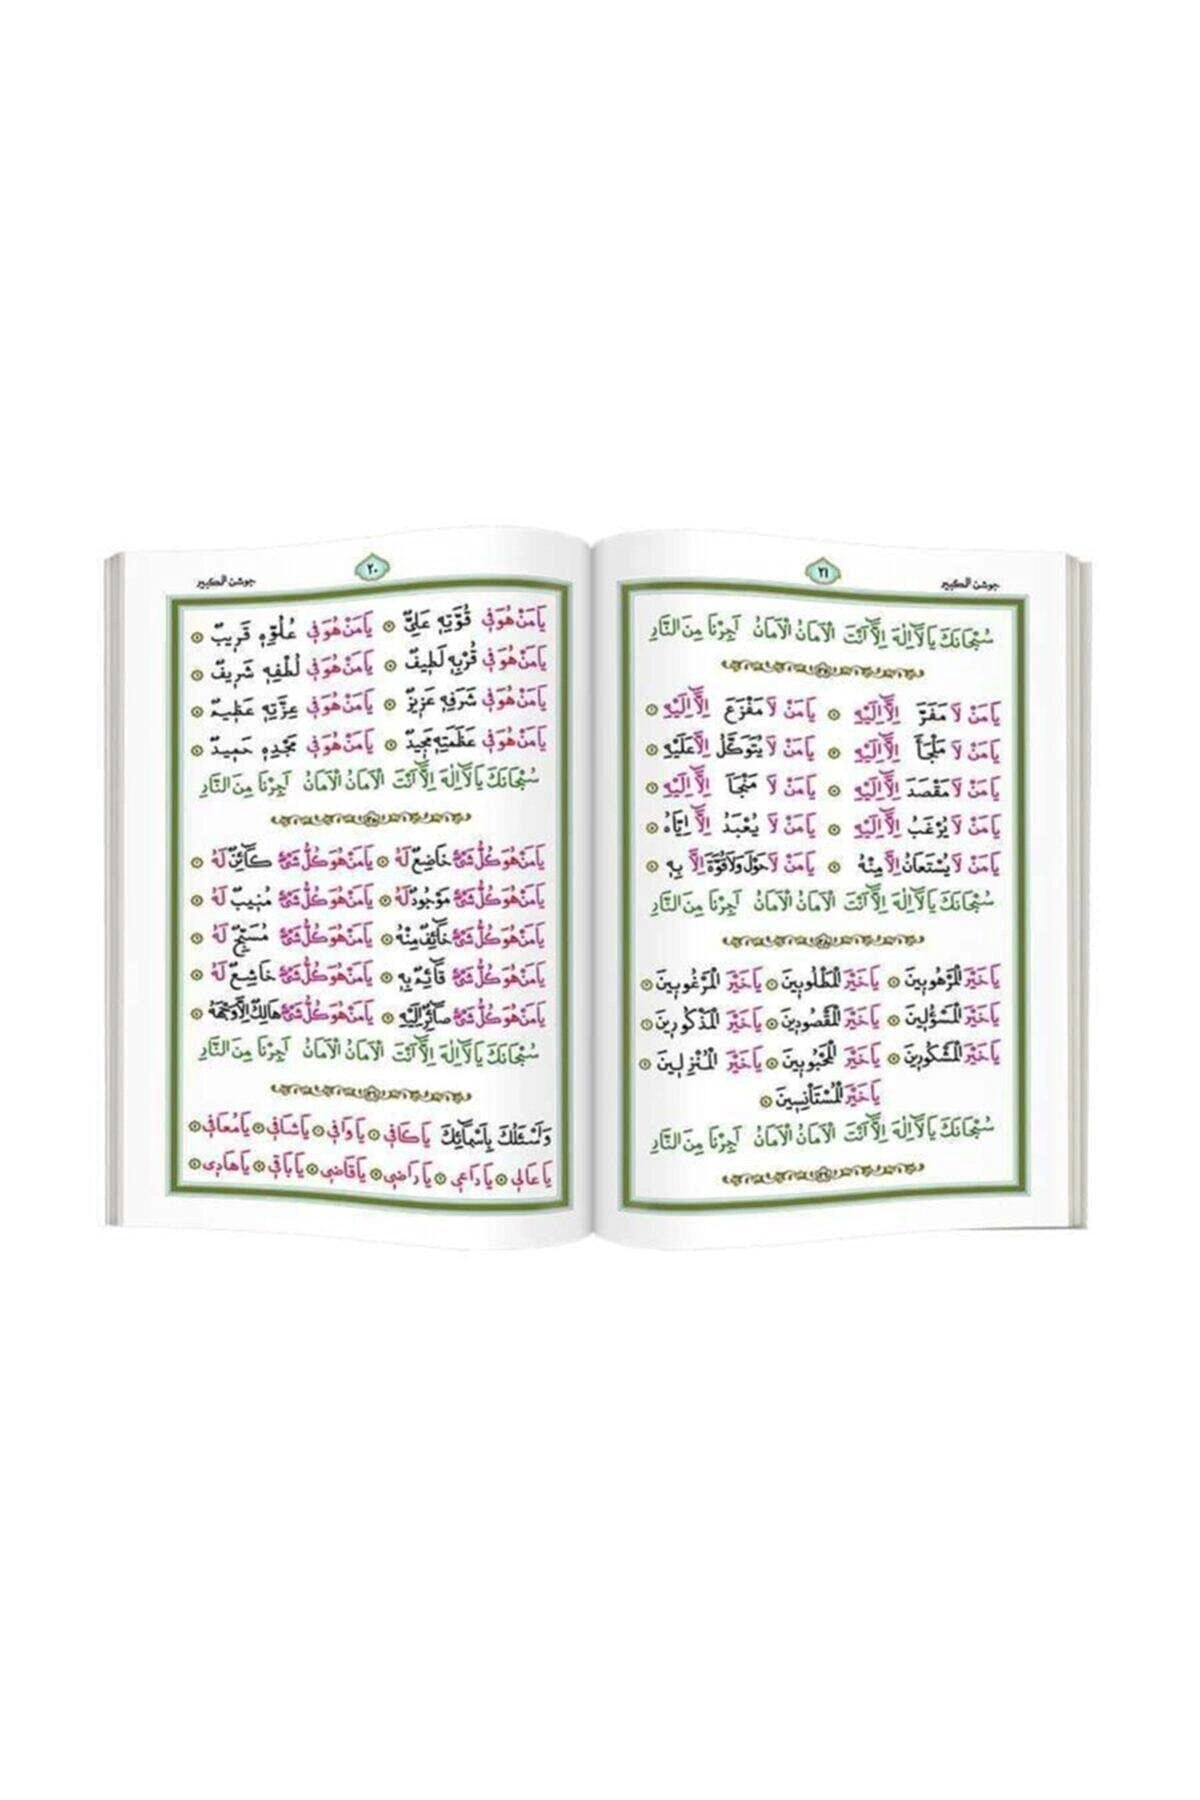 ٢٠
جوشن الكبير
يَا مَنْ هُوَ فِي قُوَّتِهِ عَلِيٌّ يَا مَنْ هُوَ فِي عُلُوِّهِ قَرِيبٌ
يَا مَنْ هُوَ فِي قُرْبِهِ لَطِيفٌ يَا مَنْ هُوَ فِي لُطْفِهِ شَرِيفٌ
يَا مَنْ هُوَ فِي شَرَفِهِ عَزِيزٌ يَا مَنْ هُوَ فِي عِزَّتِهِ عَظِيمٌ
يَا مَنْ هُوَ فِي عَظَمَتِهِ مَجِيدٌ يَا مَنْ هُوَ فِي مَجْدِهِ حَمِيدٌ
سُبْحَانَكَ يَا لَآ اِلٰهَ اِلَّآ اَنْتَ الْاَمَانُ الْاَمَانُ اَجِرْنَا مِنَ النَّارِ
يَا مَنْ هُوَ كُلُّ شَيْءٍ خَاضِعٌ لَهُ يَا مَنْ هُوَ كُلُّ شَيْءٍ كَآئِنٌ لَهُ
يَا مَنْ هُوَ كُلُّ شَيْءٍ مَوْجُودٌ لَهُ يَا مَنْ هُوَ كُلُّ شَيْءٍ مُنِيبٌ لَهُ
يَا مَنْ هُوَ كُلُّ شَيْءٍ خَآئِفٌ مِنْهُ يَا مَنْ هُوَ كُلُّ شَيْءٍ مُسَبِّحٌ لَهُ
يَا مَنْ هُوَ كُلُّ شَيْءٍ قَآئِمٌ بِهِ يَا مَنْ هُوَ كُلُّ شَيْءٍ خَاشِعٌ لَهُ
يَا مَنْ هُوَ كُلُّ شَيْءٍ صَآئِرٌ اِلَيْهِ يَا مَنْ هُوَ كُلُّ شَيْءٍ هَالِكٌ اِلَّا وَجْهَهُ
سُبْحَانَكَ يَا لَآ اِلٰهَ اِلَّآ اَنْتَ الْاَمَانُ الْاَمَانُ اَجِرْنَا مِنَ النَّارِ
وَنَسْئَلُكَ بِاَسْمَآئِكَ يَا كَافِي يَا وَافِي يَا شَافِي يَا مُعَافِي
يَا عَالِي يَا دَاعِي يَا رَاضِي يَا قَاضِي يَا بَاقِي يَا هَادِي
٢١
جوشن الكبير
سُبْحَانَكَ يَا لَآ اِلٰهَ اِلَّآ اَنْتَ الْاَمَانُ الْاَمَانُ اَجِرْنَا مِنَ النَّارِ
يَا مَنْ لَا مَفَرَّ اِلَّآ اِلَيْهِ يَا مَنْ لَا مَفْزَعَ اِلَّآ اِلَيْهِ
يَا مَنْ لَا مَلْجَأَ اِلَّآ اِلَيْهِ يَا مَنْ لَا يُتَوَكَّلُ اِلَّا عَلَيْهِ
يَا مَنْ لَا مَقْصَدَ اِلَّآ اِلَيْهِ يَا مَنْ لَا مَنْجَآ اِلَّآ اِلَيْهِ
يَا مَنْ لَا يُرْغَبُ اِلَّآ اِلَيْهِ يَا مَنْ لَا يُعْبَدُ اِلَّآ اِيَّاهُ
يَا مَنْ لَا يُسْتَعَانُ اِلَّا مِنْهُ يَا مَنْ لَا حَوْلَ وَلَا قُوَّةَ اِلَّا بِهِ
سُبْحَانَكَ يَا لَآ اِلٰهَ اِلَّآ اَنْتَ الْاَمَانُ الْاَمَانُ اَجِرْنَا مِنَ النَّارِ
يَا خَيْرَ الْمَرْهُوبِينَ يَا خَيْرَ الْمَطْلُوبِينَ يَا خَيْرَ الْمَرْغُوبِينَ
يَا خَيْرَ الْمَسْؤُلِينَ يَا خَيْرَ الْمَقْصُودِينَ يَا خَيْرَ الْمَذْكُورِينَ
يَا خَيْرَ الْمَشْكُورِينَ يَا خَيْرَ الْمَحْبُوبِينَ يَا خَيْرَ الْمُنْزِلِينَ
يَا خَيْرَ الْمُسْتَأْنِسِينَ
سُبْحَانَكَ يَا لَآ اِلٰهَ اِلَّآ اَنْتَ الْاَمَانُ الْاَمَانُ اَجِرْنَا مِنَ النَّارِ